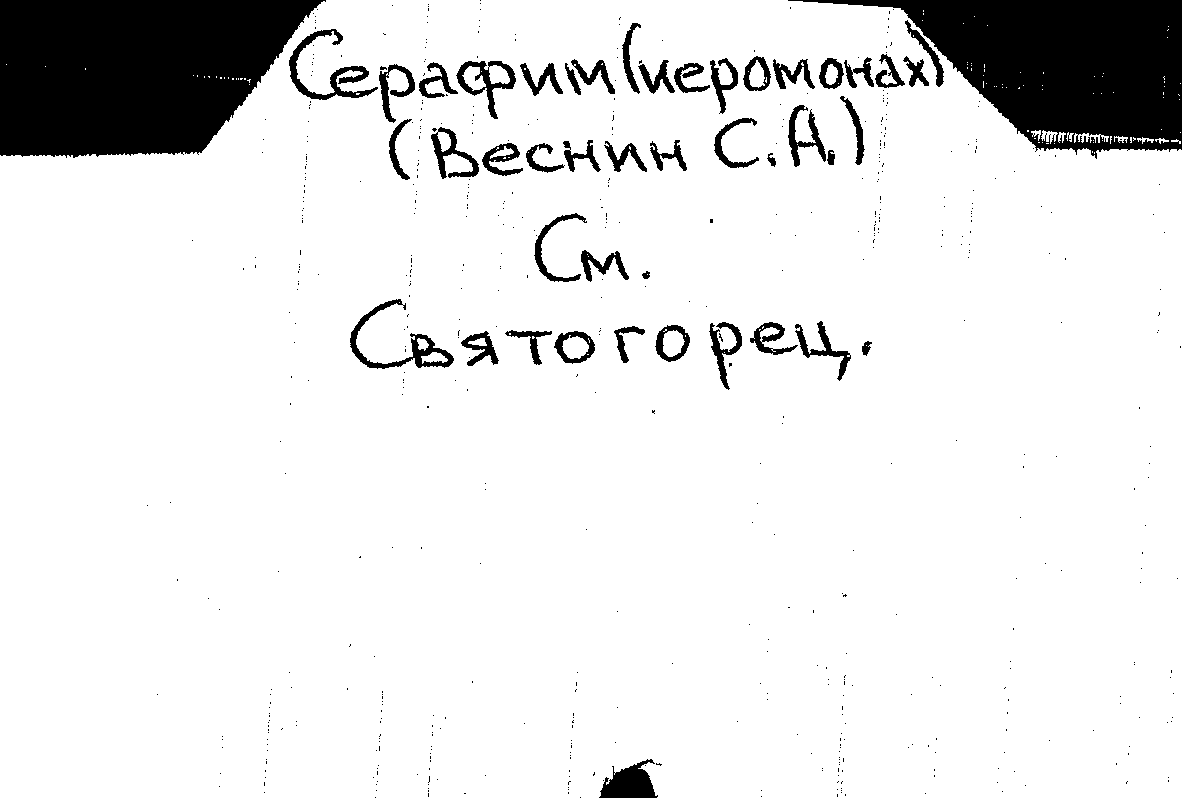 Серафим (иеромонах)
(Веснин С.А.)
См.
Святогорец.